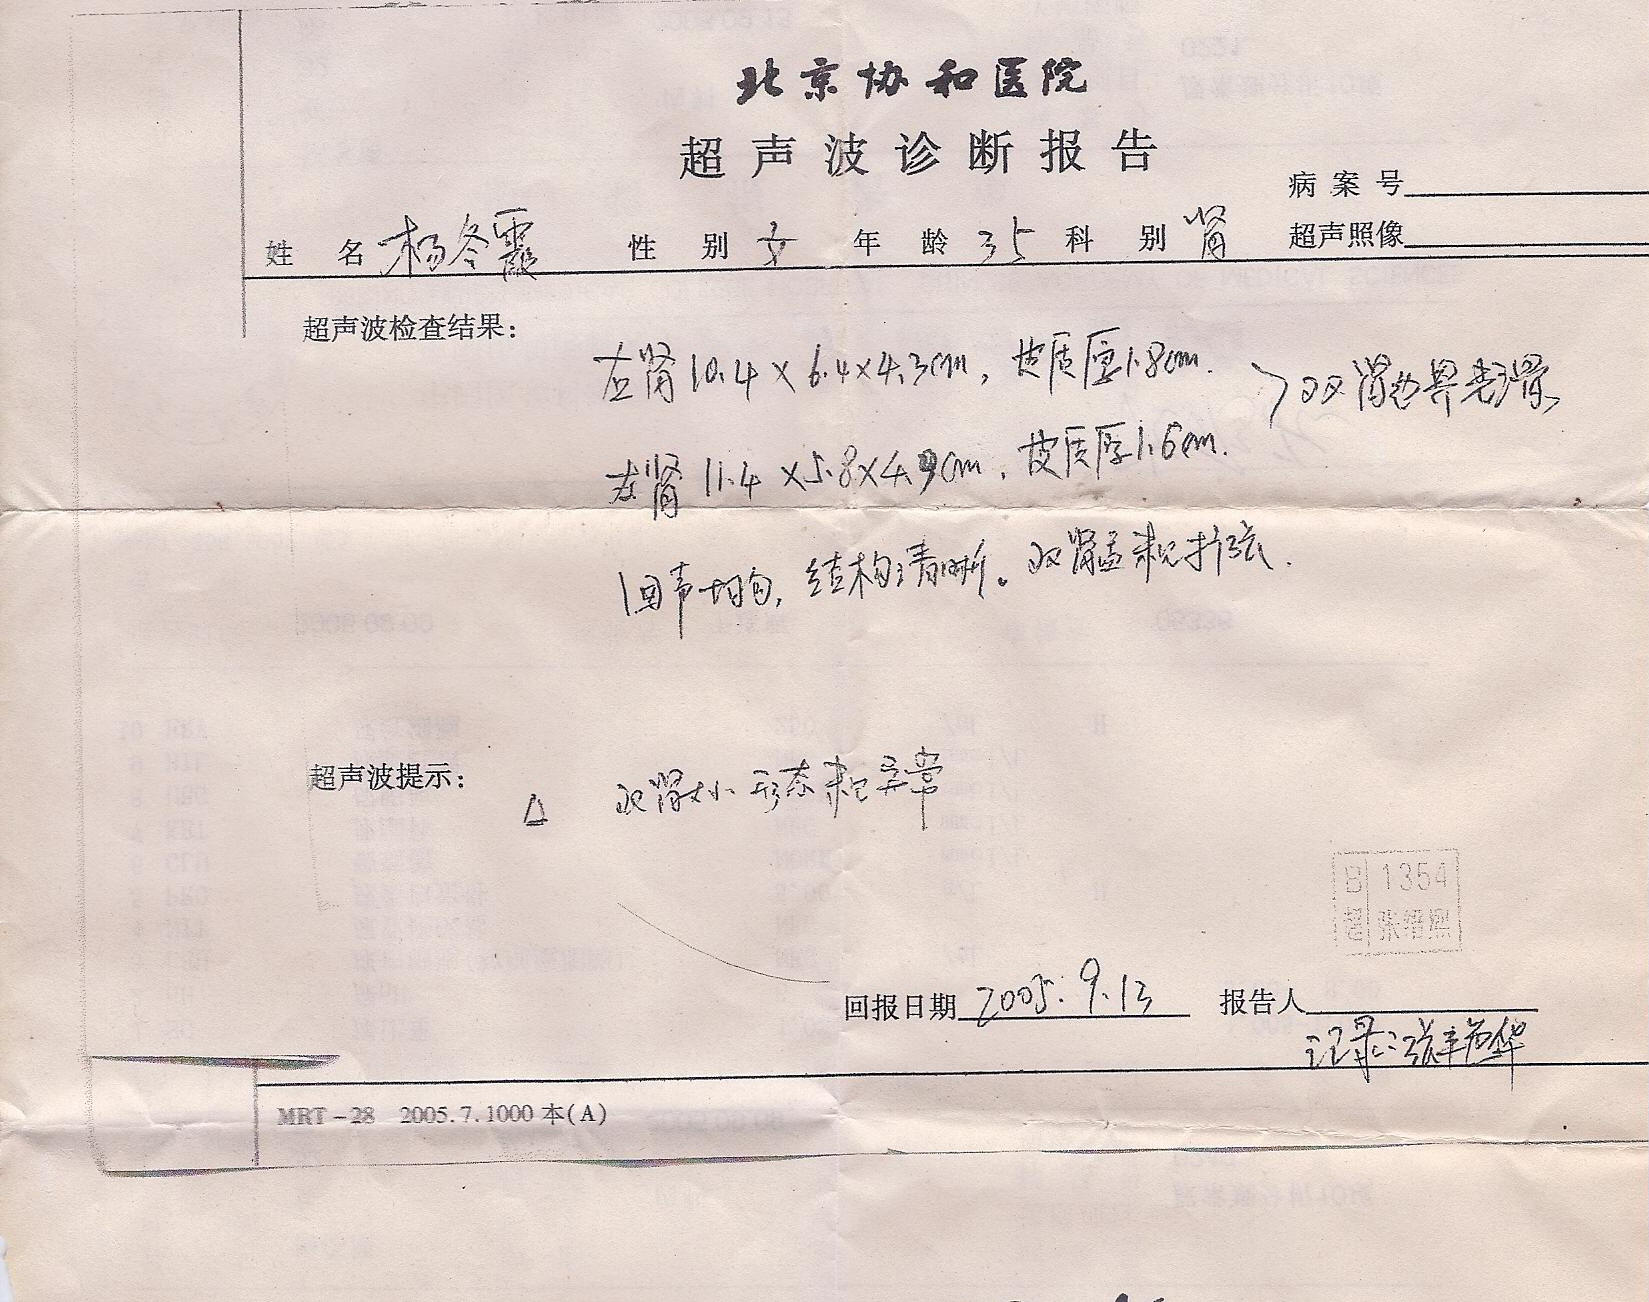 北京协和医院
超声波诊断报告
病案号
姓名 杨冬霞 性别 女 年龄 35 科别 肾 超声照像
超声波检查结果：
右肾10.4×6.4×4.3cm，皮质厚1.8cm. > 双肾边界光滑，
左肾11.4×5.8×4.9cm，皮质厚1.6cm.
回声均匀，结构清晰。双肾盂未见扩张.
超声波提示：
△ 双肾大小形态未见异常
B超 1354 张缙熙
回报日期 2005.9.13 报告人
记录：张
MRT－28 2005.7.1000本(A)